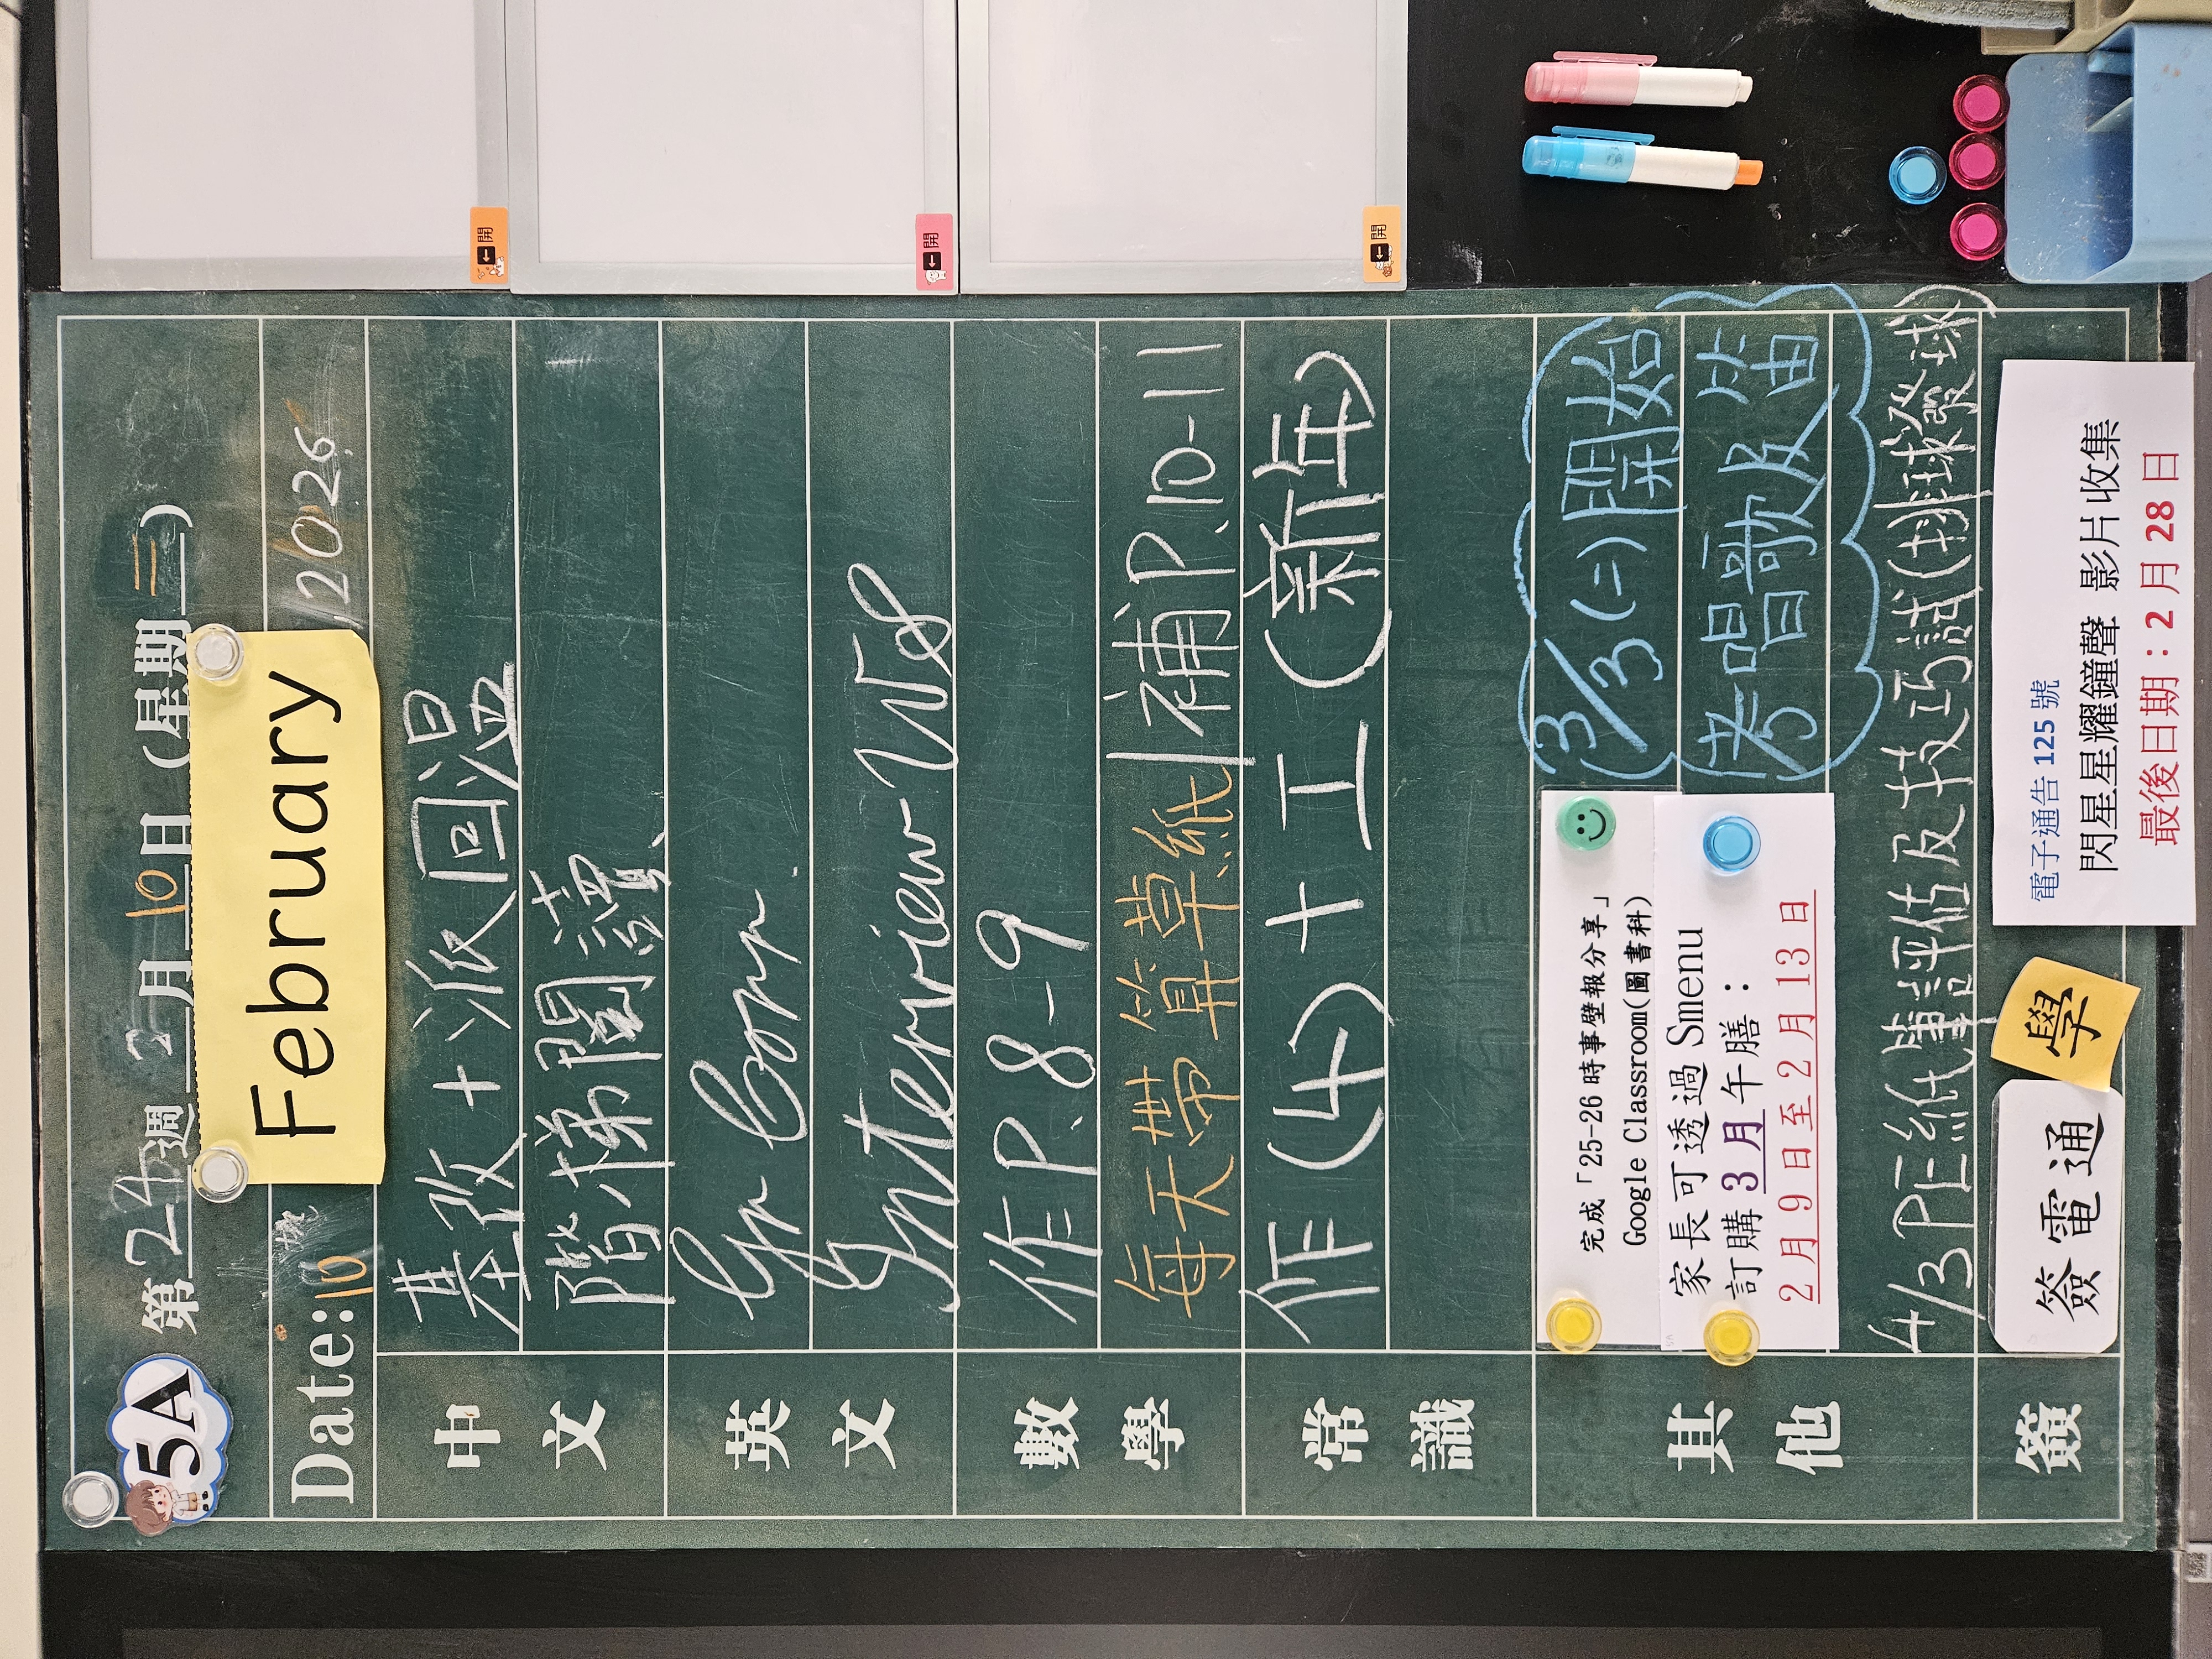 5A
第 24 週 2 月 10 日 (星期 二)
Date: 10 February, 2026
中文
基改 + 派回溫
階梯閱讀、
英文
Gr Corr.
Interview WS
數學
作 P.8-9
每天帶算草紙 | 補 P.10-11
常識
作(4) + 工(新年)
其他
完成「25-26 時事壁報分享」
Google Classroom(圖書科)
家長可透過 Smenu
訂購 3 月午膳：
2 月 9 日至 2 月 13 日
3/3 (二) 開始
考唱歌及笛
4/3 PE紙筆評估及技巧試(排球發球)
簽
簽電通
學
電子通告 125 號
閃星星耀鐘聲 影片收集
最後日期：2 月 28 日
開
開
開